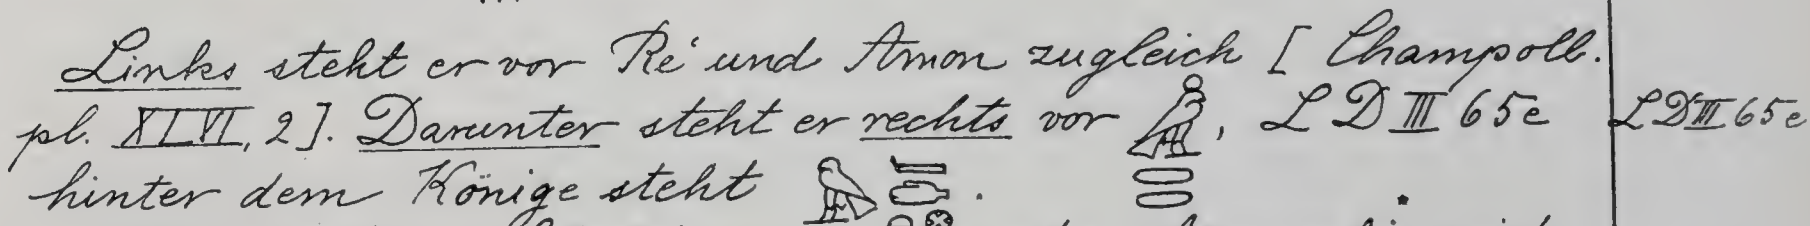 Links steht er vor Re' und Amon zugleich [ Champoll.
pl. XLVI, 2]. Darunter steht er rechts vor , LD III 65e LD III 65e
hinter dem Könige steht .